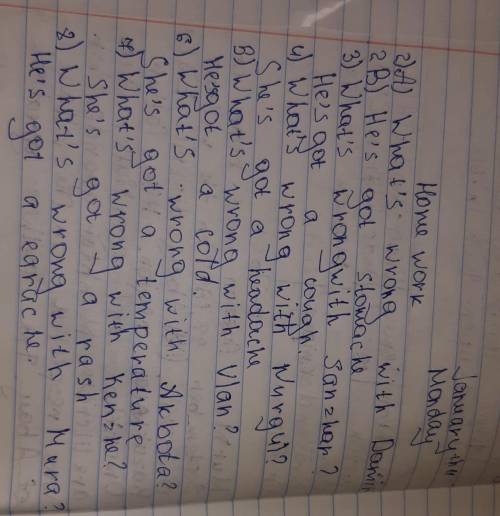 January the
Monday
Home work
2) A) What's wrong with
2 B) He's got stomache
3) What's wrong with Sanzhar?
He's got a cough.
4) What's wrong with Nurgul?
She's got a headache
5) What's wrong with Ulan?
He's got a cold.
6) What's wrong with Akbota?
She's got a temperature
7) What's wrong with Kenzhe?
She's got a rash
8) What's wrong with Mura?
He's got a earache.